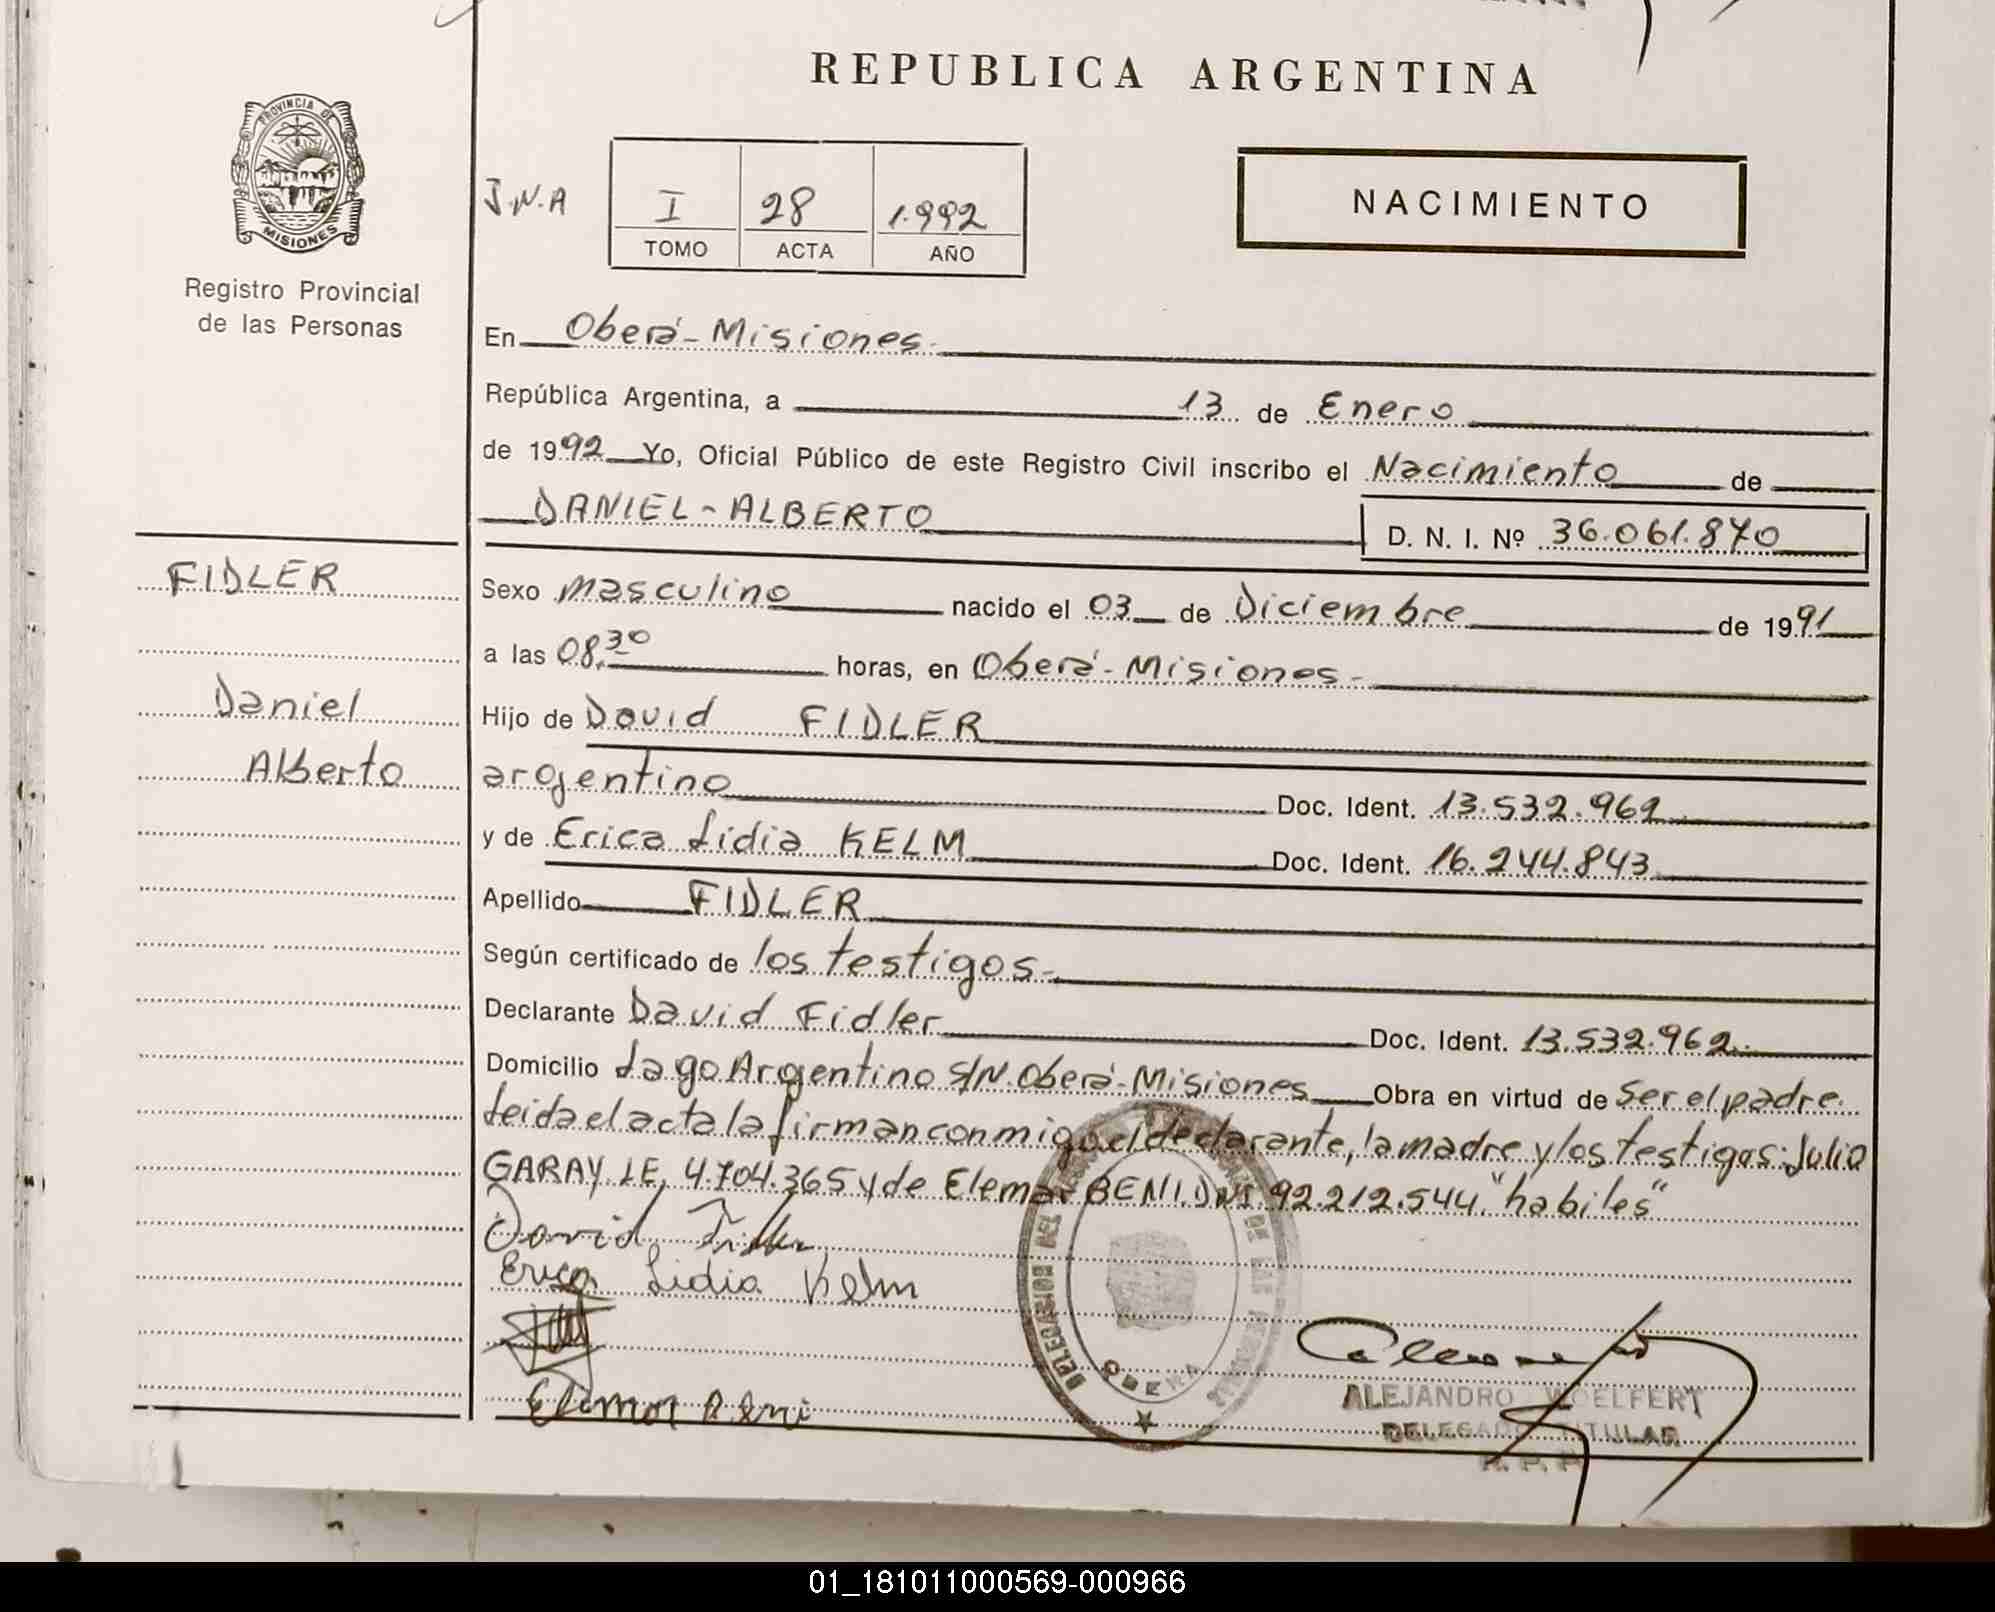 REPUBLICA ARGENTINA
PROVINCIA DE
MISIONES
Registro Provincial
de las Personas
J.N.A
I 28 1.992
TOMO ACTA AÑO
NACIMIENTO
En Oberá-Misiones.
República Argentina, a 13 de Enero
de 1992 Yo, Oficial Público de este Registro Civil inscribo el Nacimiento de
DANIEL-ALBERTO D. N. I. Nº 36.061.870
FIDLER
Daniel
Alberto
Sexo masculino nacido el 03 de Diciembre de 1991
a las 08,30 horas, en Oberá-Misiones-
Hijo de David FIDLER
argentino Doc. Ident. 13.532.962
y de Erica Lidia KELM Doc. Ident. 16.244.843
Apellido FIDLER
Según certificado de los testigos-
Declarante David Fidler Doc. Ident. 13.532.962.
Domicilio Lago Argentino S/N.Oberá-Misiones Obra en virtud de ser el padre.
Leida el acta la firman conmigo el declarante, la madre y los testigos: Julio
GARAY LE, 4.704.365 y de Elemar BENI.DNI. 92.212.544."habiles"
David Fidler
Erica Lidia Kelm
Elemar Beni
DELEGACION DEL DE LAS
OBERA
ALEJANDRO WOELFERT
DELEGADO TITULAR
R. P. P.
01_181011000569-000966